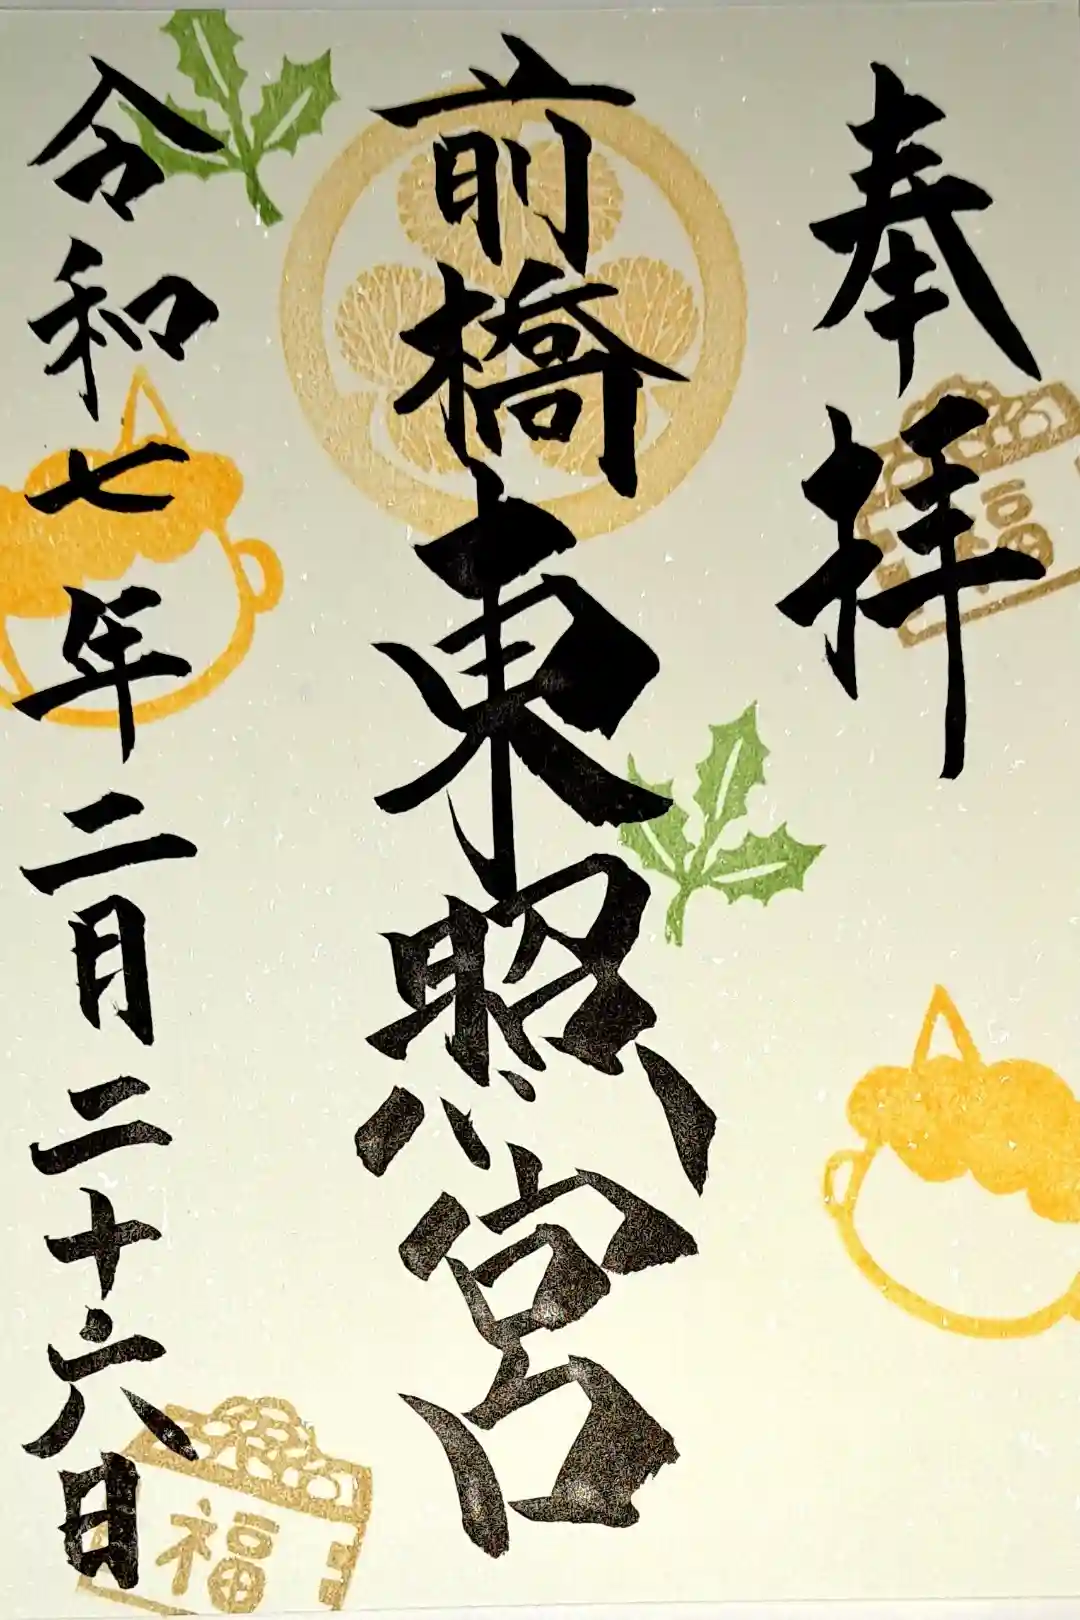 奉拝
福
前橋東照宮
令和七年二月二十六日
福